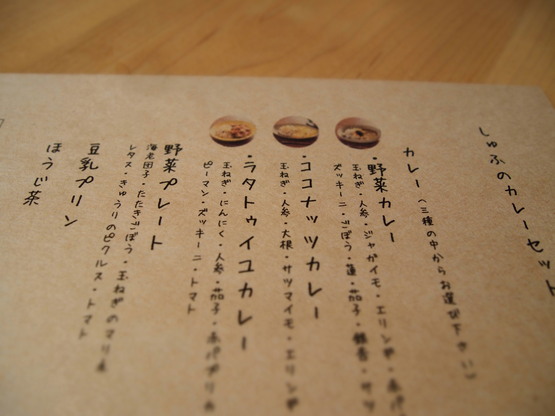 しゅふのカレーセット
カレー(三種の中からお選び下さい)
・野菜カレー
玉ねぎ・人参・ジャガイモ・エリンギ・赤パ
ズッキーニ・ごぼう・蓮・茄子・銀杏・サツ
・ココナッツカレー
玉ねぎ・人参・大根・サツマイモ・エリンギ
・ラタトゥイユカレー
玉ねぎ・にんにく・人参・茄子・赤パプリカ
ピーマン・ズッキーニ・トマト
野菜プレート
海老団子・たたきごぼう・玉ねぎのマリネ
レタス・きゅうりのピクルス・トマト
豆乳プリン
ほうじ茶